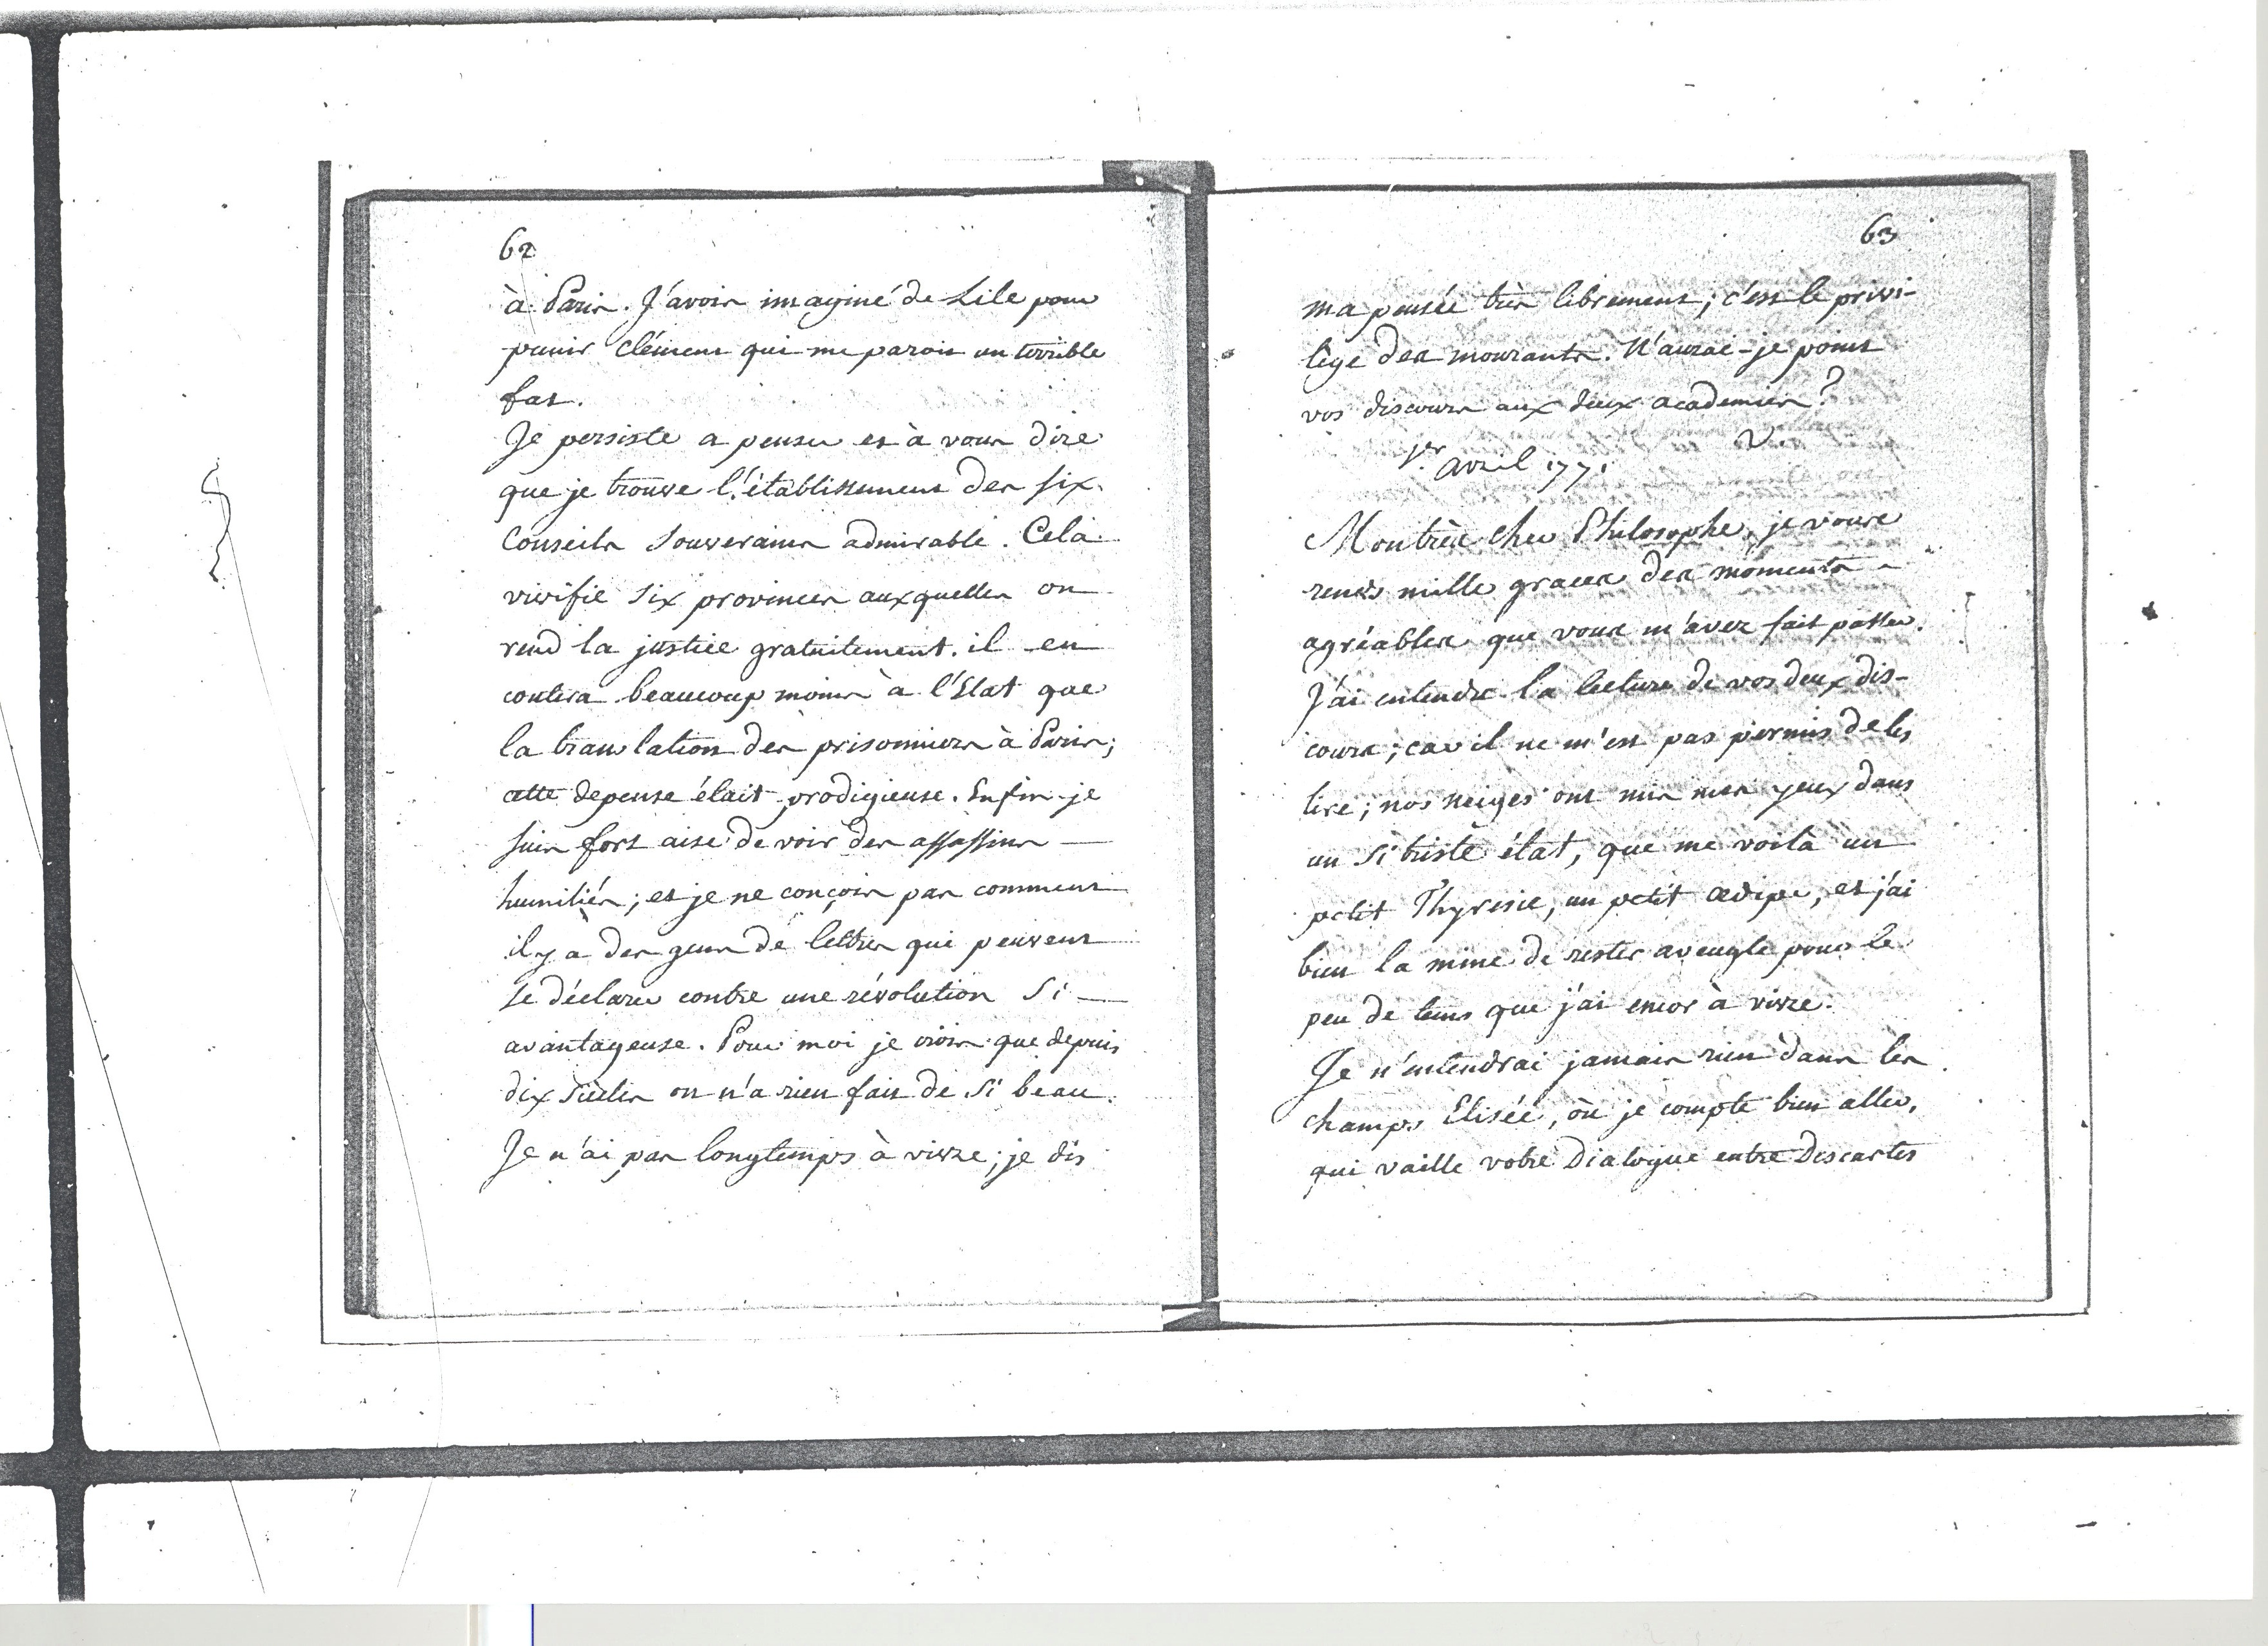 62
à Paris. J'avois imaginé de Lile pour
punir Clément qui me paroit un terrible
fat.
Je persiste a penser et à vous dire
que je trouve l'établissement des six
Conseils Souverains admirable. Cela
vivifie six provinces auxquelles on
rend la justice gratuitement. il en
coutera beaucoup moins à l'Etat que
la translation des prisonniers à Paris;
cette depense était prodigieuse. Enfin je
suis fort aise de voir des assassins —
humiliés; et je ne conçois pas comment
il y à des gens de lettres qui peuvent
se déclarer contre une révolution si —
avantageuse. Pour moi je crois que depuis
dix siècles on n'a rien fait de si beau.
Je n'ai pas longtemps à vivre; je dis
63
ma pensée très librement; c'est le privi-
lège des mourants. N'aurai-je point
vos discours aux deux academies?
V.
1er avril 1771
Mon très cher Philosophe, je vous
rends mille graces des moments
agréables que vous m'avez fait passer.
J'ai entendu la lecture de vos deux dis-
cours; car il ne m'est pas permis de les
lire; nos neiges ont mis mes yeux dans
un si triste état, que me voilà un
petit Thyresie, un petit œdipe, et j'ai
bien la mine de rester aveugle pour le
peu de tems que j'ai encor à vivre.
Je n'entendrai jamais rien dans les
champs Elisée, où je compte bien aller,
qui vaille votre Dialogue entre Descartes